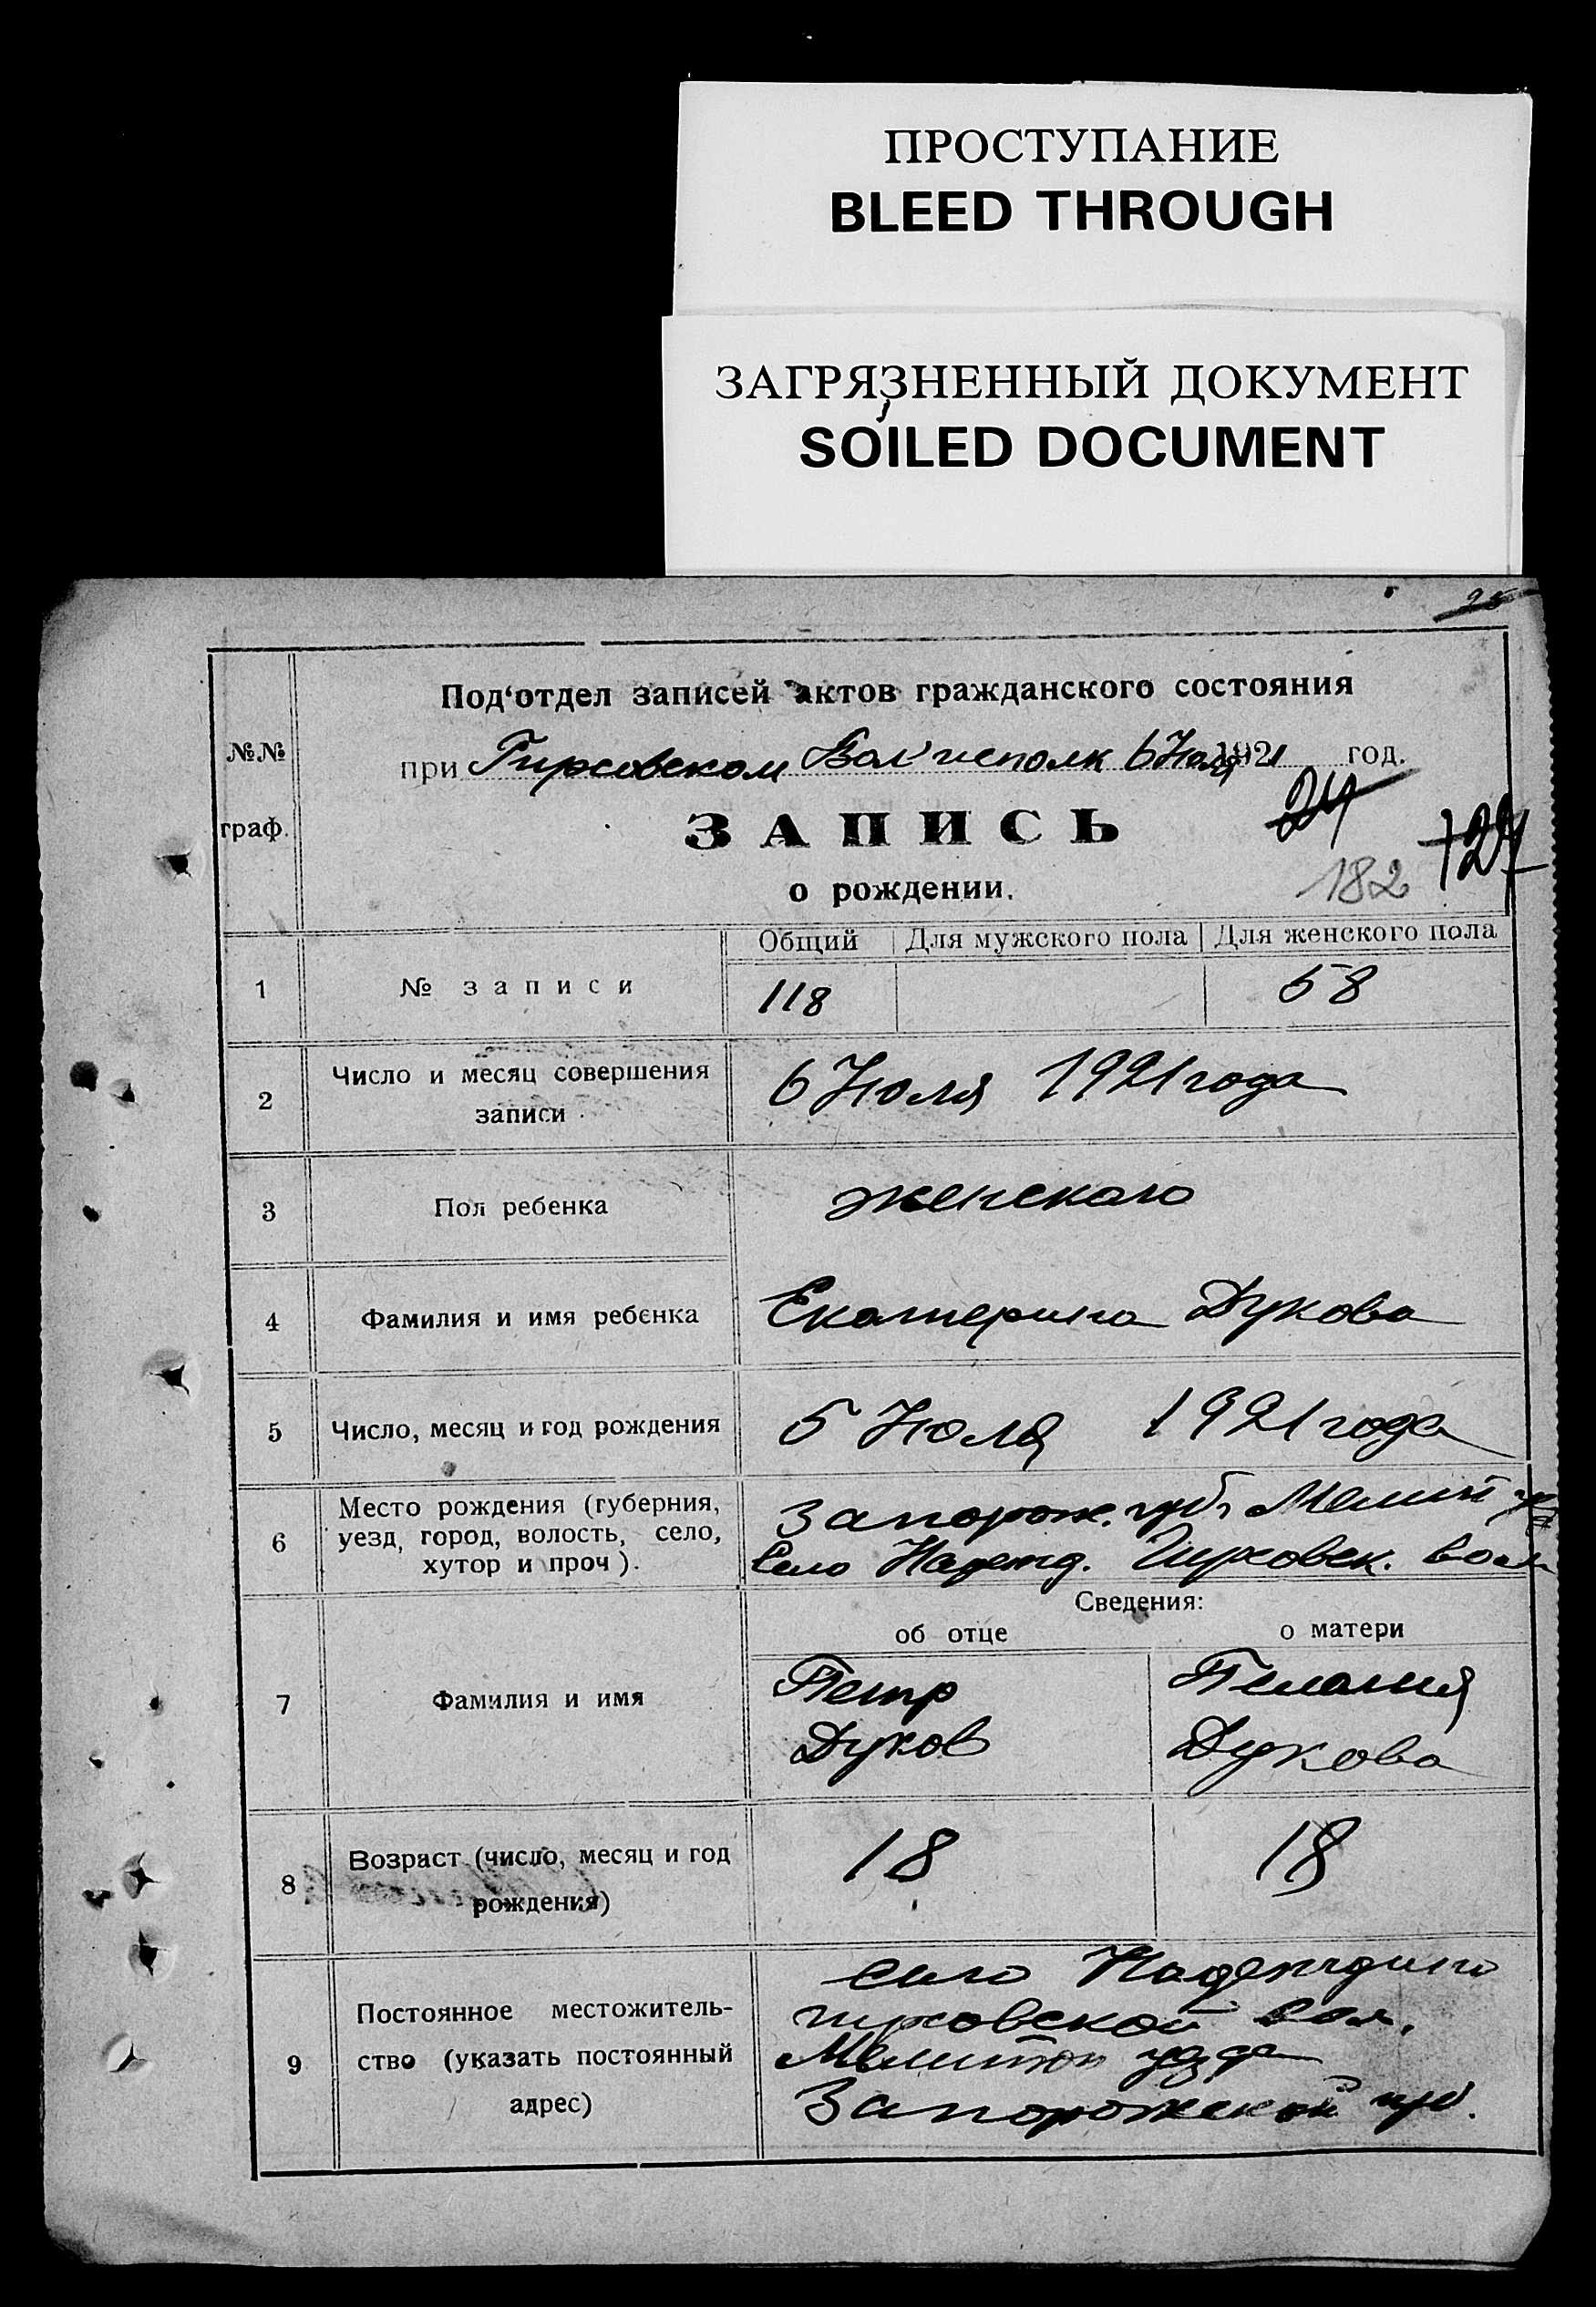 ПРОСТУПАНИЕ
BLEED THROUGH
ЗАГРЯЗНЕННЫЙ ДОКУМЕНТ
SOILED DOCUMENT
25
Под‘отдел записей актов гражданского состояния
№№ граф.
при Гирсовском Вол исполк 6 Июля 1921 год.
24
ЗАПИСЬ
о рождении.
182
Общий Для мужского пола Для женского пола
1 № записи 118 58
2 Число и месяц совершения
записи
6 Июля 1921 года
3 Пол ребенка женского
4 Фамилия и имя ребенка Екатерина Дукова
5 Число, месяц и год рождения 5 Июля 1921 года
6 Место рождения (губерния,
уезд, город, волость, село,
хутор и проч).
Запорож. губ. Мелит
Село Гирсовск. вол
Сведения:
об отце о матери
7 Фамилия и имя
Петр Пелагия
Дуков Дукова
8 Возраст (число, месяц и год
рождения)
18 18
9 Постоянное местожитель-
ство (указать постоянный
адрес)
село Надеждино
гирсовской вол.
Мелитоп уезда
Запорожской губ.